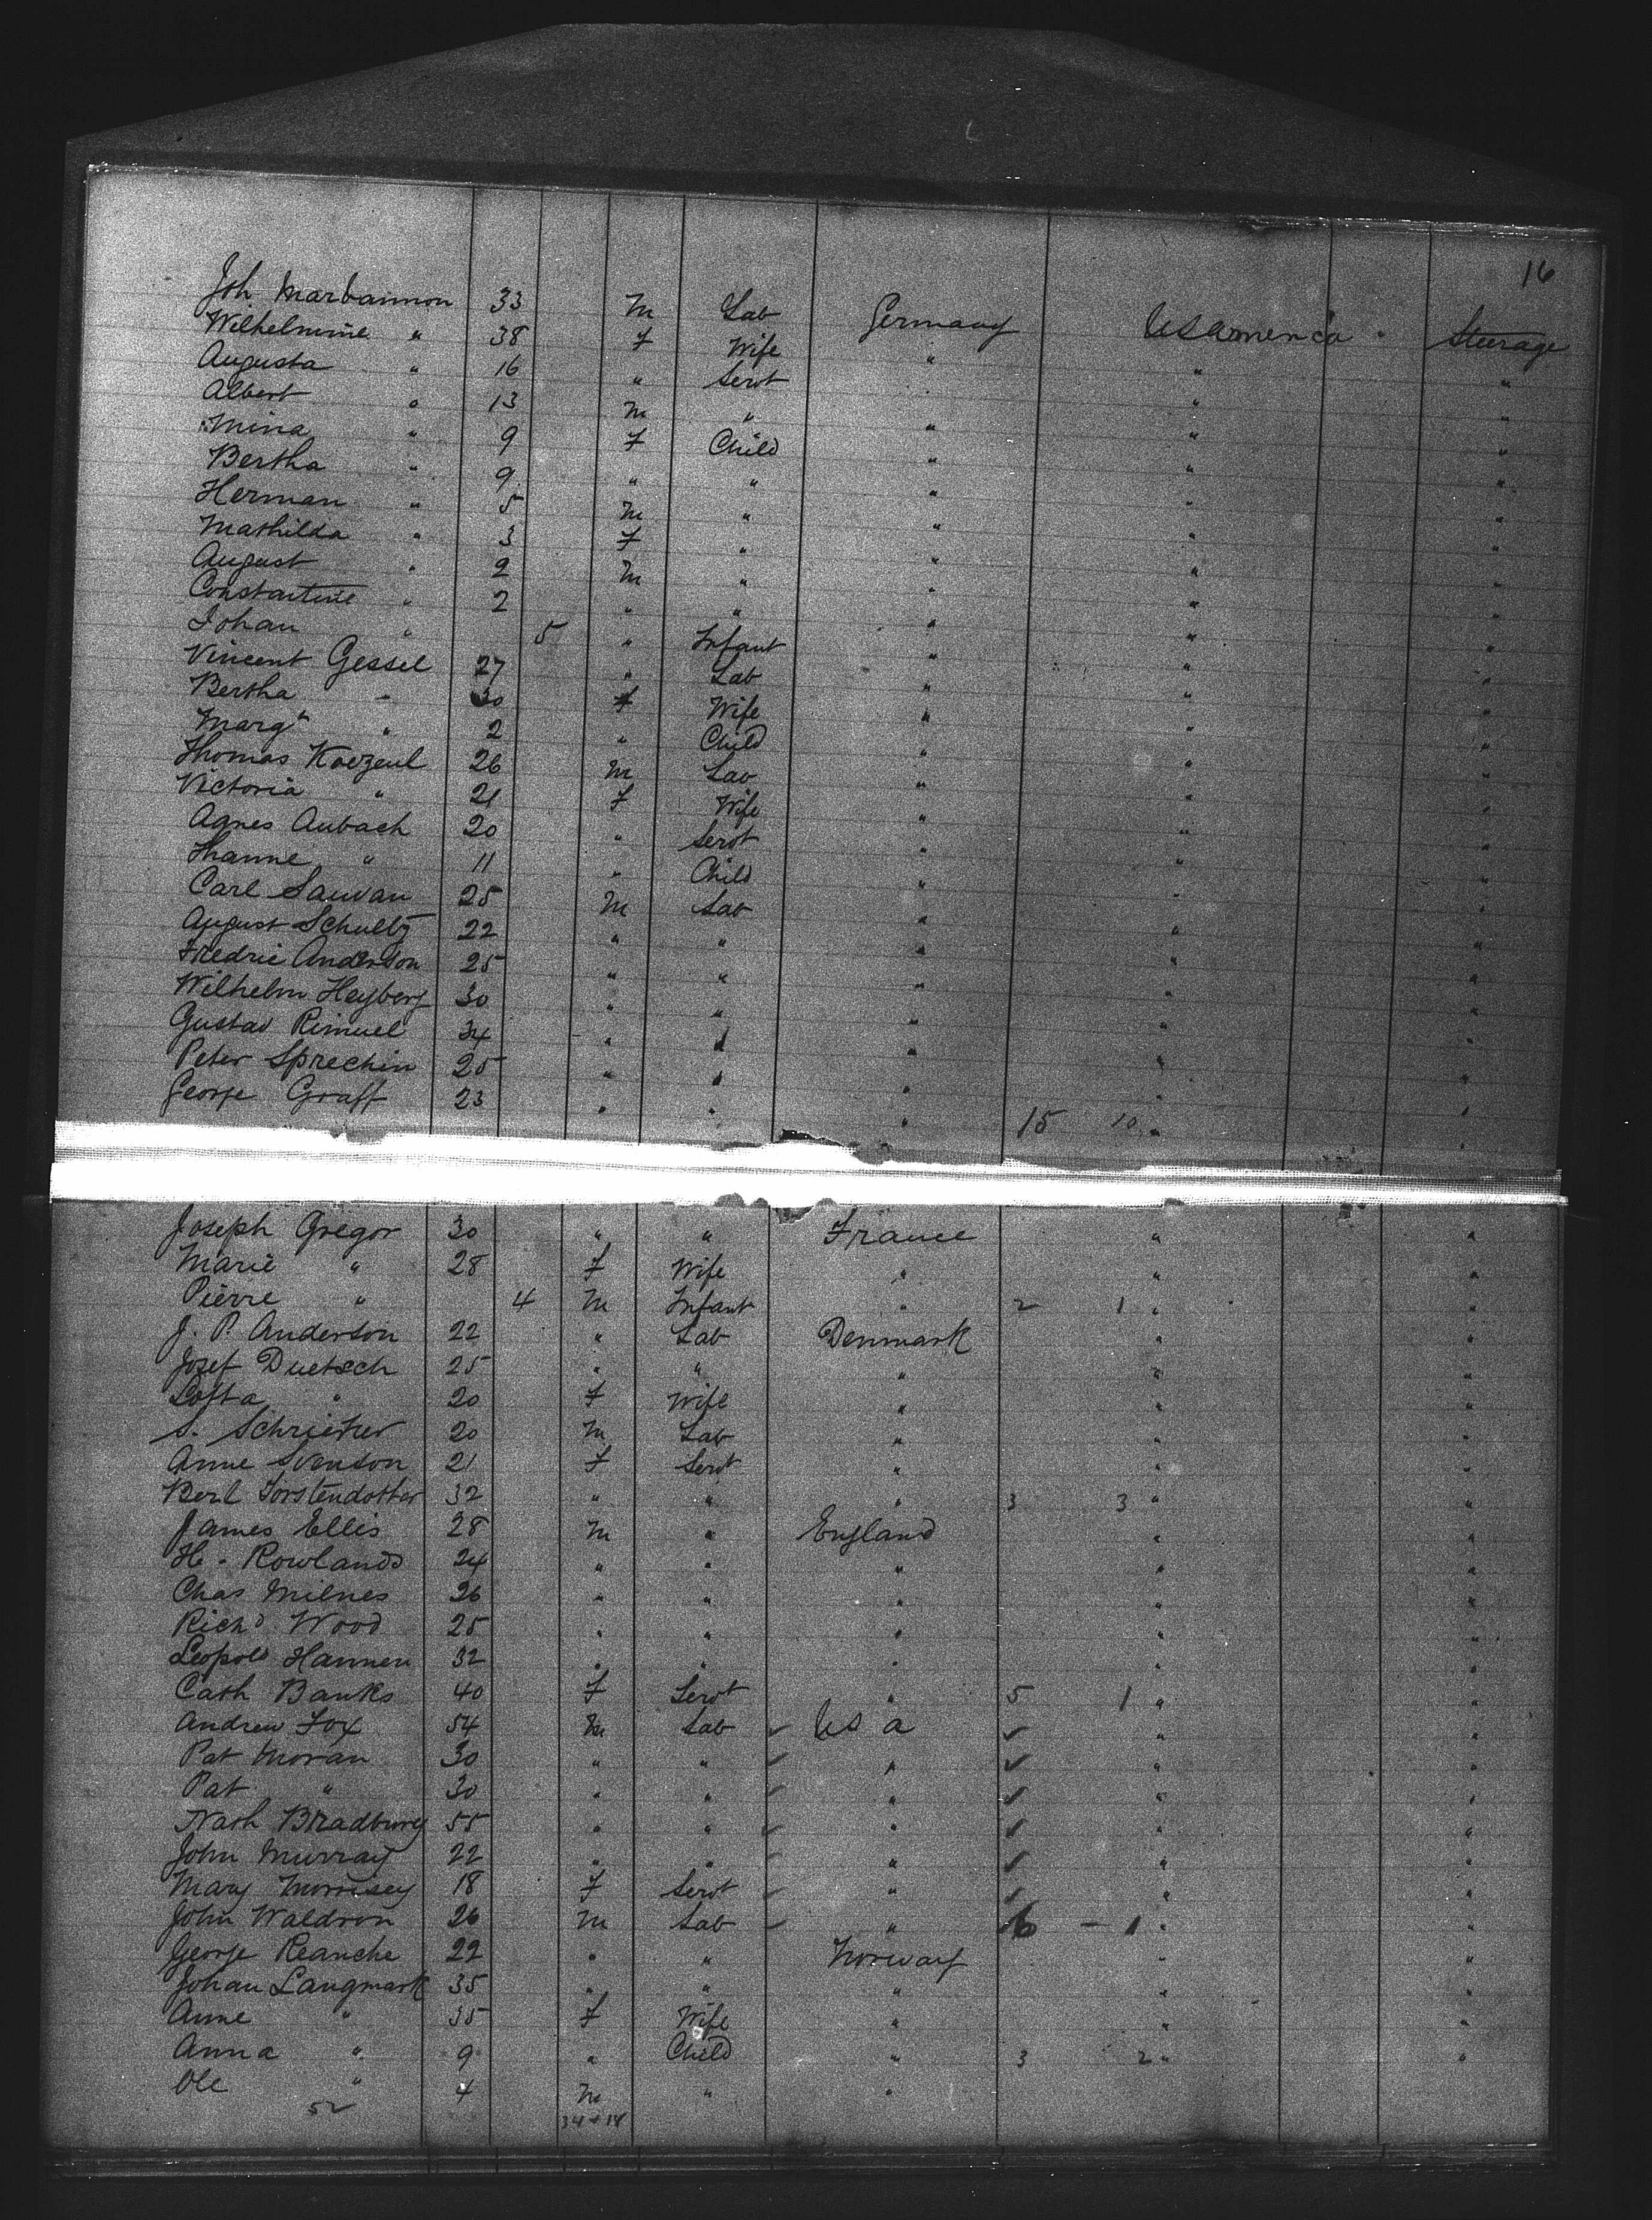 16
Joh Marbannon 33 M Lab Germany USAmerica Steerage
Wilhelmine " 38 F Wife " " "
Augusta " 16 " Servt " "
Albert " 13 M " " " "
Mina " 9 F Child " " "
Bertha " 9 " " " " "
Herman " 5 M " " " "
Mathilda " 3 F " " " "
August " 2 M " " " "
Constantine " 2 " " " " "
Johan " 5 " Infant " " "
Vincent Gessel 27 " Lab " " "
Bertha " 30 F Wife " " "
Margt " 2 " Child " " "
Thomas Koezeul 26 M Lab " " "
Victoria " 21 F Wife " " "
Agnes Aubach 20 " Servt " " "
Hanne " 11 " Child " " "
Carl Sauvan 25 M Lab " " "
August Schultz 22 " " " " "
Fredric Anderson 25 " " " " "
Wilhelm Heyberg 30 " " " " "
Gustav Rimuel 34 " " " " "
Peter Sprechin 25 " " " " "
George Graff 23 " " " 15 10 " "
Joseph Gregor 30 " " France " "
Marie " 28 F Wife " " "
Pierre " 4 M Infant " 2 1 " "
J. P. Anderson 22 " Lab Denmark " "
Jozef Duetsch 25 " " " " "
Lotta " 20 F Wife " " "
S. Schrietrer 20 M Lab " " "
Anne Svenson 21 F Servt " " "
Berl Torstendotter 32 " " " 3 3 " "
James Ellis 28 M " England " "
H. Rowlands 24 " " " " "
Chas Milnes 26 " " " " "
Richd Wood 25 " " " " "
Leopold Hannen 32 " " " " "
Cath Banks 40 F Servt " 5 1 " "
Andrew Fox 54 M Lab ✓ US a ✓ " "
Pat Moran 30 " " ✓ " ✓ " "
Pat " 30 " " ✓ " ✓ " "
Nath Bradbury 55 " " ✓ " ✓ " "
John Murray 22 " " ✓ " ✓ " "
Mary Morrisey 18 F Servt ✓ " ✓ " "
John Waldron 26 M Lab ✓ " 6 - 1 " "
George Reanche 22 " " Norway " "
Johan Langmark 35 " " " " "
Anne " 35 F Wife " " "
Anna " 9 " Child " 3 2 " "
Ole " 4 M " "
52 34+18